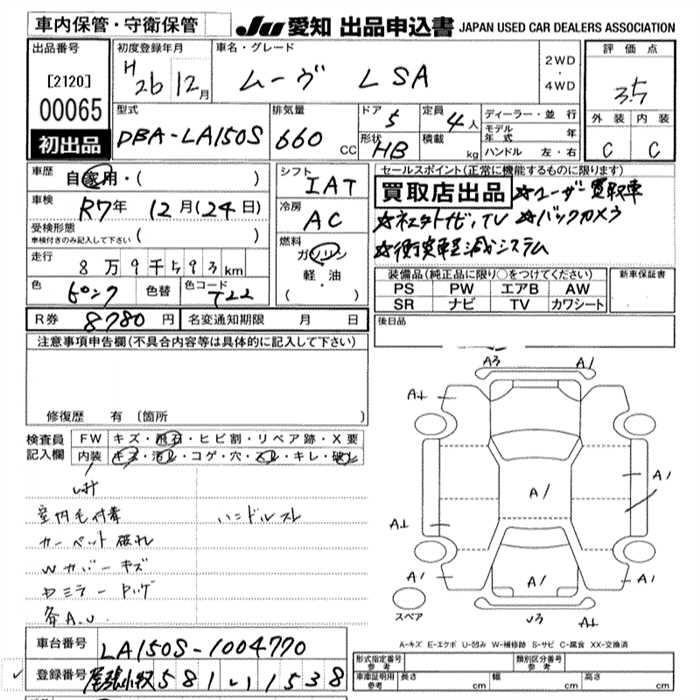 車内保管・守衛保管
JU 愛知 出品申込書 JAPAN USED CAR DEALERS ASSOCIATION
出品番号
[2120]
00065
初出品
初度登録年月
H26 12月
車名・グレード
ムーヴ LSA
2WD
・
4WD
評価点
3.5
外装 内装
C C
型式
DBA-LA150S
排気量
660 CC
ドア 5
形状 HB
定員 4人
積載 kg
ディーラー・並行
モデル年式 年
ハンドル 左・右
車歴 自家用・( )
車検 R7年 12月(24日)
受検形態
車検付きのみ記入して下さい ( )
走行 8万9千593km
色 ピンク 色替 色コード T22
シフト IAT
冷房 AC
燃料
ガソリン
軽・油
( )
R券 8780円 名変通知期限 月 日
セールスポイント(正常に機能するものに限ります)
買取店出品 ☆ユーザー買取車
☆ネスタトナビ、TV ☆バックカメラ
☆衝突軽減システム
装備品(純正品に限り○をつけてください)
PS PW エアB AW
SR ナビ TV カワシート
新車保証書
後日品
注意事項申告欄(不具合内容等は具体的に記入して下さい)
修復歴 有 (箇所
検査員記入欄
FW キズ・飛石・ヒビ割・リペア跡・X要
内装 キズ・汚れ・コゲ・穴・スレ・キレ・破れ
室内毛付着 ハンドルスレ
カーペット破れ
Wカバーキズ
各A.U.
A3 A1
A1
A1
A1
A1
A1
A1
U3
スペア
A-キズ E-エクボ U-凹み W-補修跡 S-サビ C-腐食 XX-交換済
車台番号 LA150S-1004770
登録番号 尾張小牧 581 い 1538
形式指定番号
参考
類別区分番号
参考
車庫証明用
参考
長さ cm 幅 cm 高さ cm